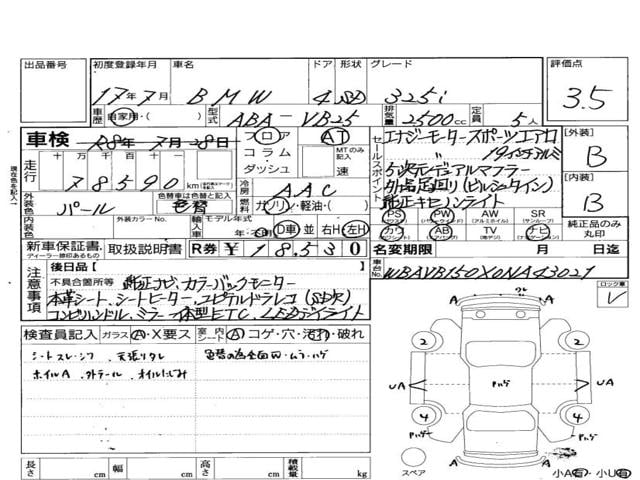 出品番号 初度登録年月 車名 ドア 形状 グレード 評価点
17年7月 BMW 4 325i 3.5
車歴 自家用・( ) 型式 ABA-VB25 排気量 2500cc 定員 5人
車検 R8年7月28日 フロア AT エナジーモータースポーツエアロ
コラム MTのみ記入 19インチアルミ
ダッシュ 速 セールスポイント
走行 十万 万 千 百 十 78590 km 5次元デュアルマフラー
冷房 AAC 外品足廻り(ビルシュタイン)
外装色 パール 色替車は色替と記入 色替 燃料 ガソリン・軽油・( ) 純正キセノンライト
内装色 外装カラーNo. モデル年式 輸入車 D車 並 右H・左H
PS PW AW SR
カワ AB TV ナビ
外装 B
内装 B
純正品のみ丸印
新車保証書 取扱説明書 R券 ¥18530 名変期限 月 日迄
ディーラー捺印あるもの
車台No. WBAVB150X0NA43021
注意事項 後日品( )
不具合箇所等 純正ナビ、カラーバックモニター
本革シート、シートヒーター、ユピテルドラレコ
コンビハンドル、ミラー一体型ETC、LEDデイライト
ロックナンバー
検査員記入 ガラス A・X要ス 室内シート A コゲ・穴・汚れ・破れ
シートスレ・シワ 天張りタレ 色替の為全面W・ムラ・ハゲ
ホイルA 外テール オイルにじみ
A A
2 2
UA Pハゲ UA
4 4
Pハゲ Pハゲ
A A
スペア 小A有・小U有
長さ cm 幅 cm 高さ cm 積載量 kg